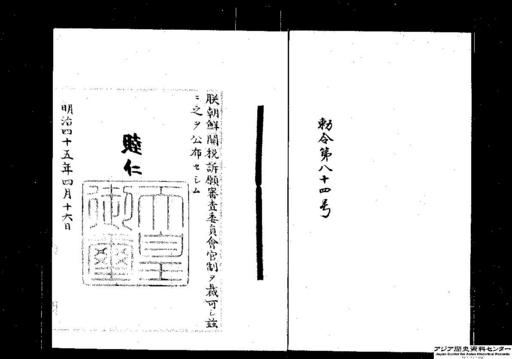 勅令第八十四号
朕朝鮮関税訴願審査委員會官制ヲ裁可シ茲
ニ之ヲ公布セシム
睦仁
天皇
御璽
明治四十五年四月十六日
アジア歴史資料センター
Japan Center for Asian Historical Records